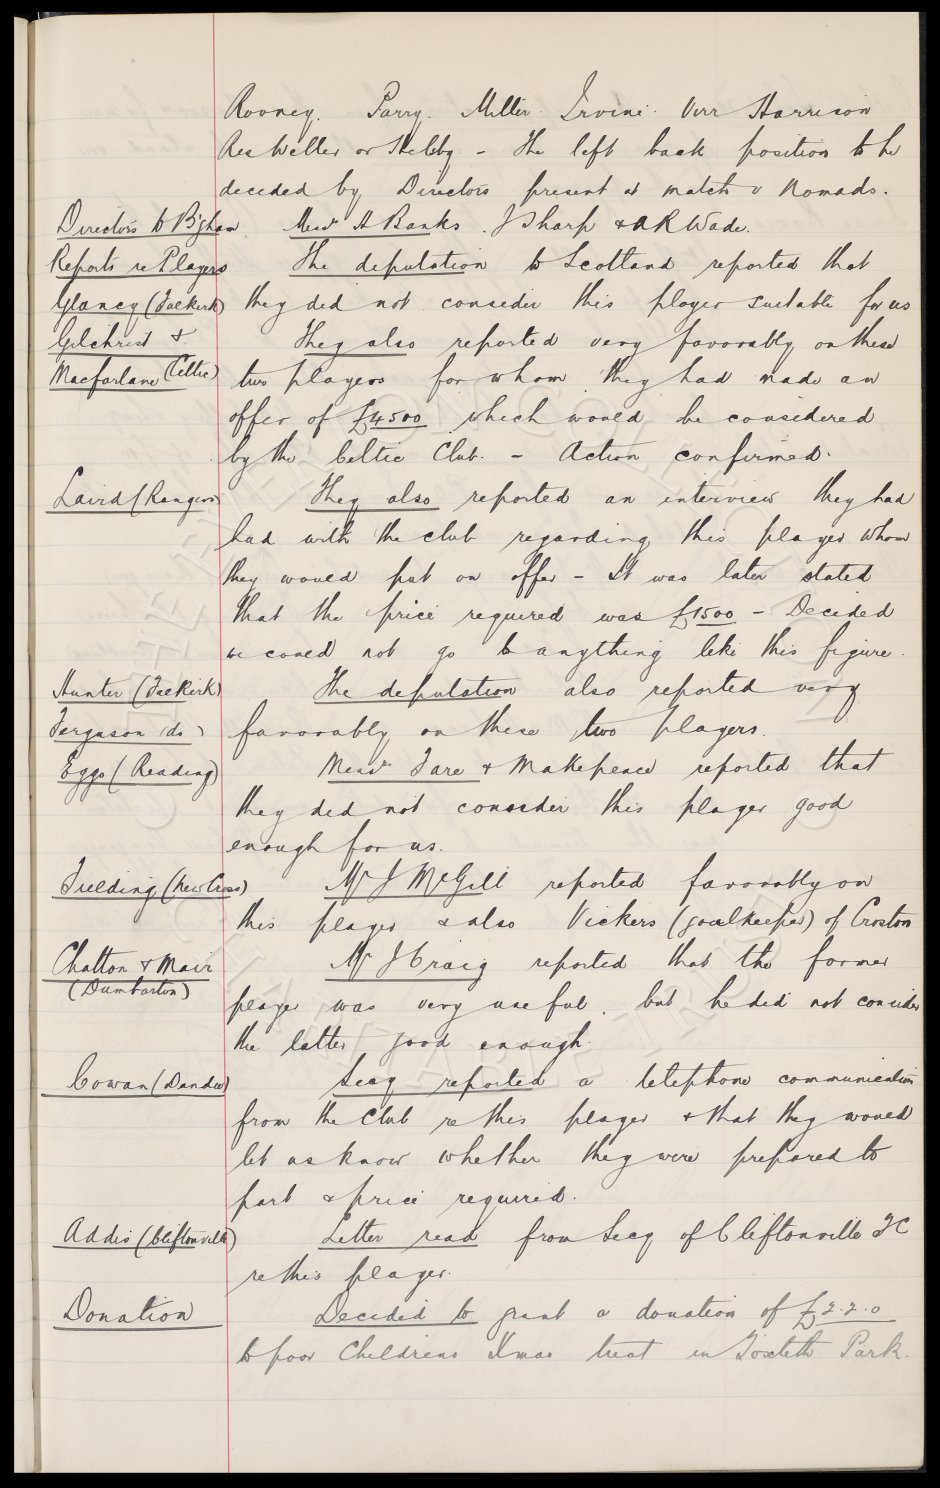 Rooney. Parry. Miller. Irvine. Virr Harrison
Res Weller or Shelby - The left back position to be
decided by Directors present at match v Nomads.
Directors to B'gham. Messrs A Banks. J Sharp & A R Wade.
Reports re Players The deputation to Scotland reported that
Glancy (Falkirk) they did not consider this player suitable for us
Gilchrist & They also reported very favorably on these
Macfarlane (Celtic) two players for whom they had made an
offer of £4500 which would be considered
by the Celtic Club. - Action confirmed.
Laird (Rangers) They also reported an interview they had
had with the club regarding this player whom
they would put on offer - It was later stated
that the price required was £1500 - Decided
we could not go to anything like this figure.
Hunter (Falkirk) The deputation also reported very
Ferguson (do) favorably on these two players.
Eggo (Reading) Messrs Fare & Makepeace reported that
they did not consider this player good
enough for us.
Fielding (New Cross) Mr J McGill reported favorably on
this player & also Vickers (goalkeeper) of Croston
Chatton & Mair Mr J Craig reported that the former
(Dumbarton)
player was very useful, but he did not consider
the latter good enough.
Cowan (Dundee) Secy reported a telephone communication
from the Club re this player & that they would
let us know whether they were prepared to
part & price required.
Addis (Cliftonville) Letter read from Secy of Cliftonville FC
re this player.
Donation Decided to grant a donation of £2.2.0
to poor Childrens Xmas treat in Toxteth Park.